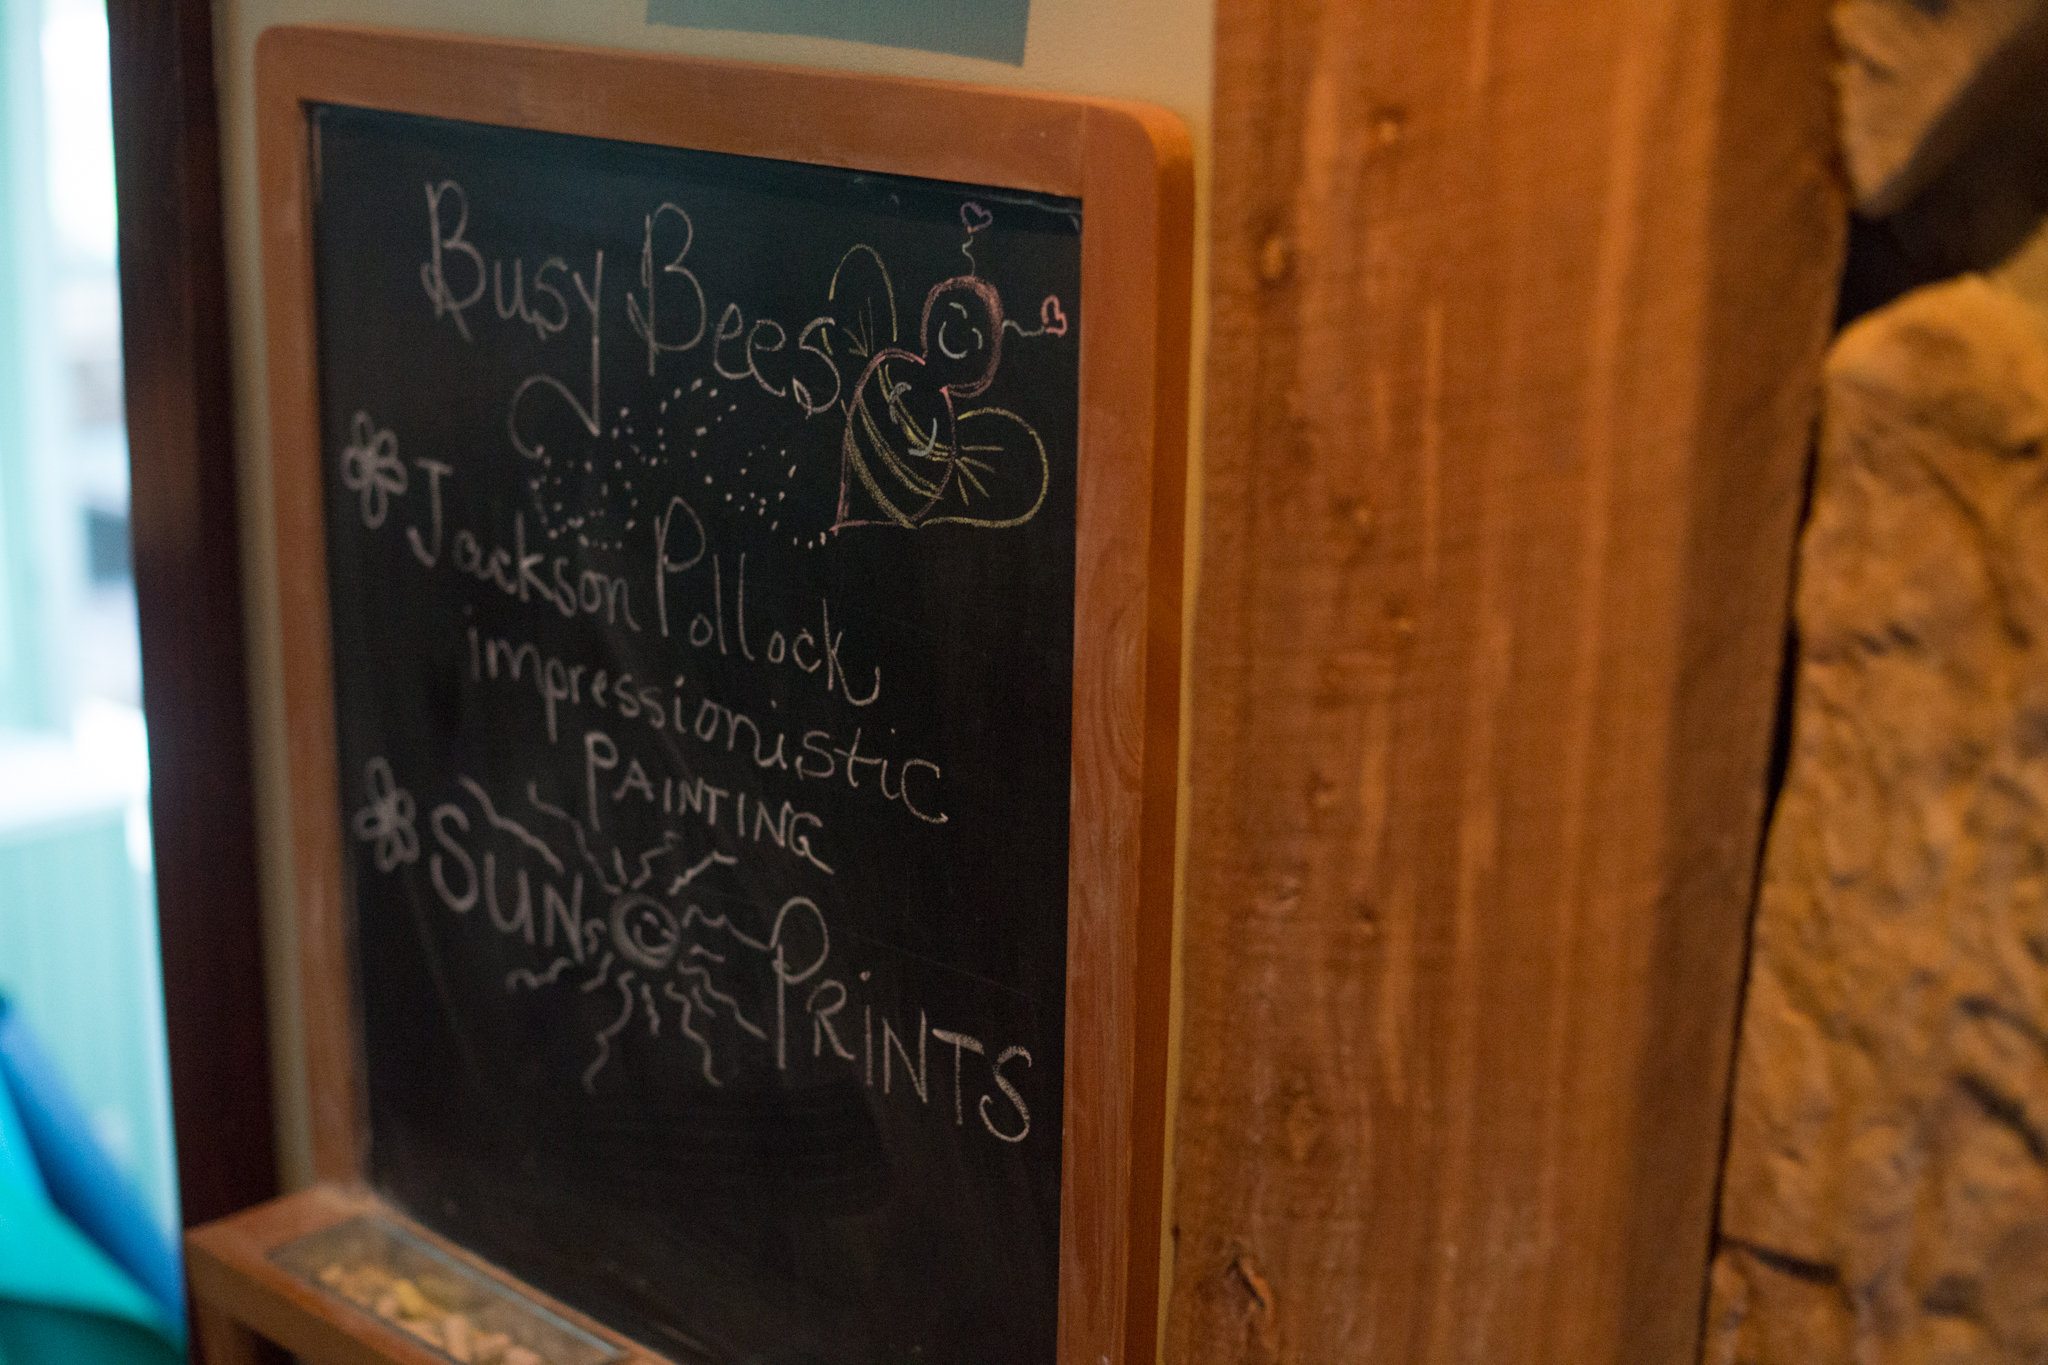 Busy Bees
Jackson Pollock
impressionistic
PAINTING
SUN PRINTS